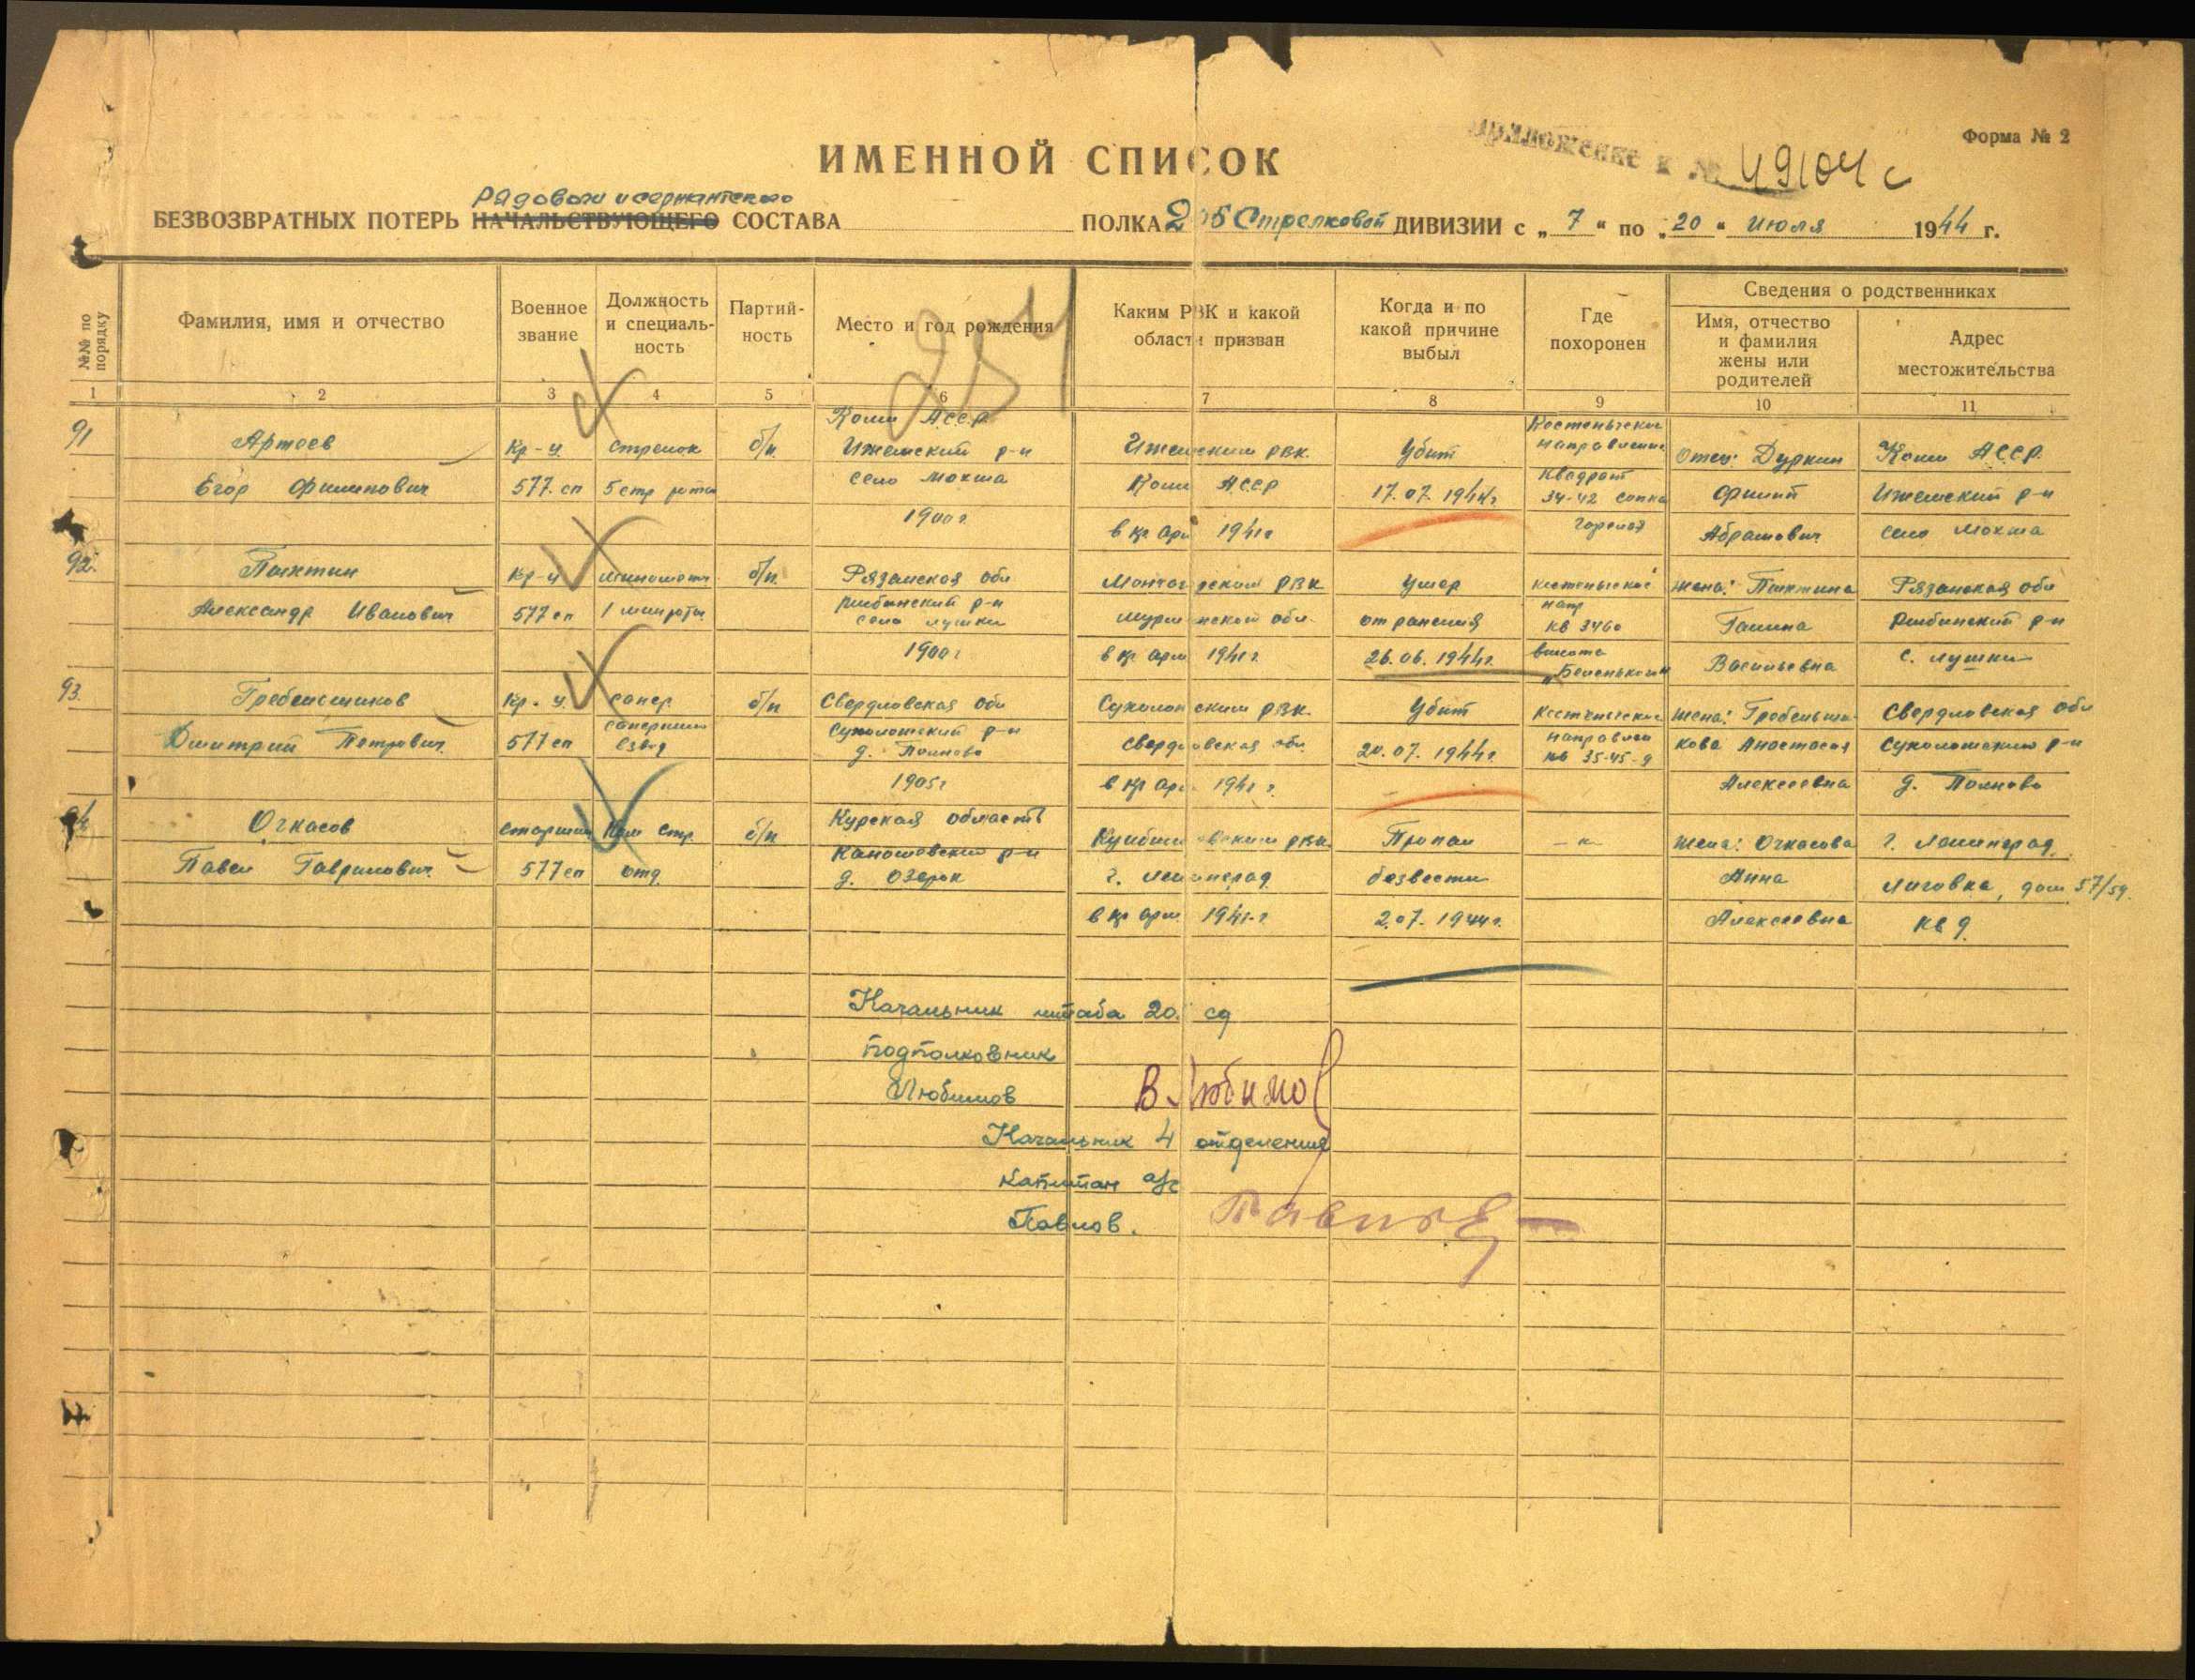 Форма № 2
приложение к № 49104 с
ИМЕННОЙ СПИСОК
рядового и сержантского
БЕЗВОЗВРАТНЫХ ПОТЕРЬ НАЧАЛЬСТВУЮЩЕГО СОСТАВА ПОЛКА 205 Стрелковой ДИВИЗИИ с „7“ по „20“ июля 1944 г.
№№ по порядку
Фамилия, имя и отчество
Военное звание
Должность и специаль-ность
Партий-ность
Место и год рождения
Каким РВК и какой области призван
Когда и по какой причине выбыл
Где похоронен
Сведения о родственниках
Имя, отчество и фамилия жены или родителей
Адрес местожительства
1 2 3 4 5 6 7 8 9 10 11
251
91 Артеев Кр-ц стрелок б/п Коми АССР Ижемский р-н Ижемским РВК Убит Кестеньгское направление Отец: Дуркин Коми АССР
Егор Филипович 577 сп 5 стр рота село Мохча Коми АССР 17.07.1944г. Квадрат 34-42 сопка Филип Ижемский р-н
1900г в кр арм 1941г Абрамович село Мохча
92. Кр-ц минометч б/п. Рязанская обл РВК Умер кестеньгское жена: Рязанская обл
Александр Иванович 577 сп 1 мин рота р-н от ранения напр кв 3460 Галина р-н
1900г в кр арм 1941г. 26.06.1944г. высота „Беленькая“ Васильевна
93. Гребенщиков Кр-ц сапер б/п Свердловская обл Сухоложским РВК Убит Кестеньгское жена: Гребенщи-
Дмитрий Петрович 577 сп саперный взвод Сухоложский р-н Свердловская обл 20.07.1944г. направлен кв 35-45-9 кова Анастасия Сухоложский р-н
1905г в кр арм 1941г. Алексеевна
Свердловская обл
94 Очкасов старшин Ком стр. б/п Курская область Куйбышевским РВК Пропал — " — жена: Очкасова г. Ленинград
Павел Гаврилович 577 сп отд. р-н д. Озерок г. Ленинград безвести Анна Лиговка, дом 57/59.
в кр арм 1941 г 2.07.1944г. Алексеевна кв 9
Начальник штаба 205 сд
подполковник
Любимов В. Любимов
Начальник 4 отделения
капитан а/с
Павлов. Павлов